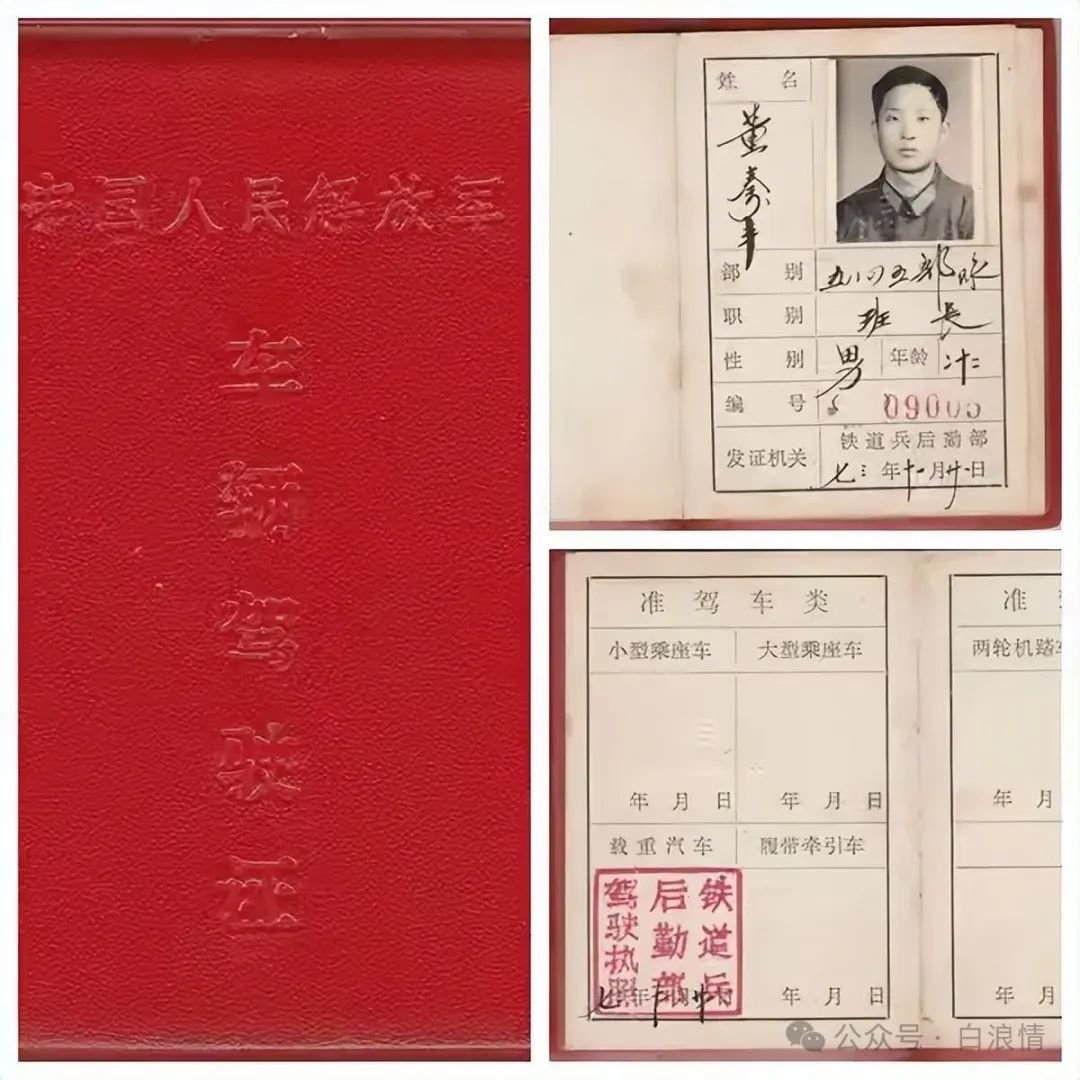 中国人民解放军
车
辆
驾
驶
证
姓 名
黄
部 别 九八四五部队
职 别 班 长
性 别 男 年龄 廿二
编 号 09005
发证机关 铁道兵后勤部
七三年十一月廿一日
准 驾 车 类
小型乘座车 大型乘座车
年 月 日 年 月 日
载重汽车 履带牵引车
铁道兵
后勤部
驾驶执照
年 月 日
准
两轮机踏
年 月
年 月
公众号·白浪情